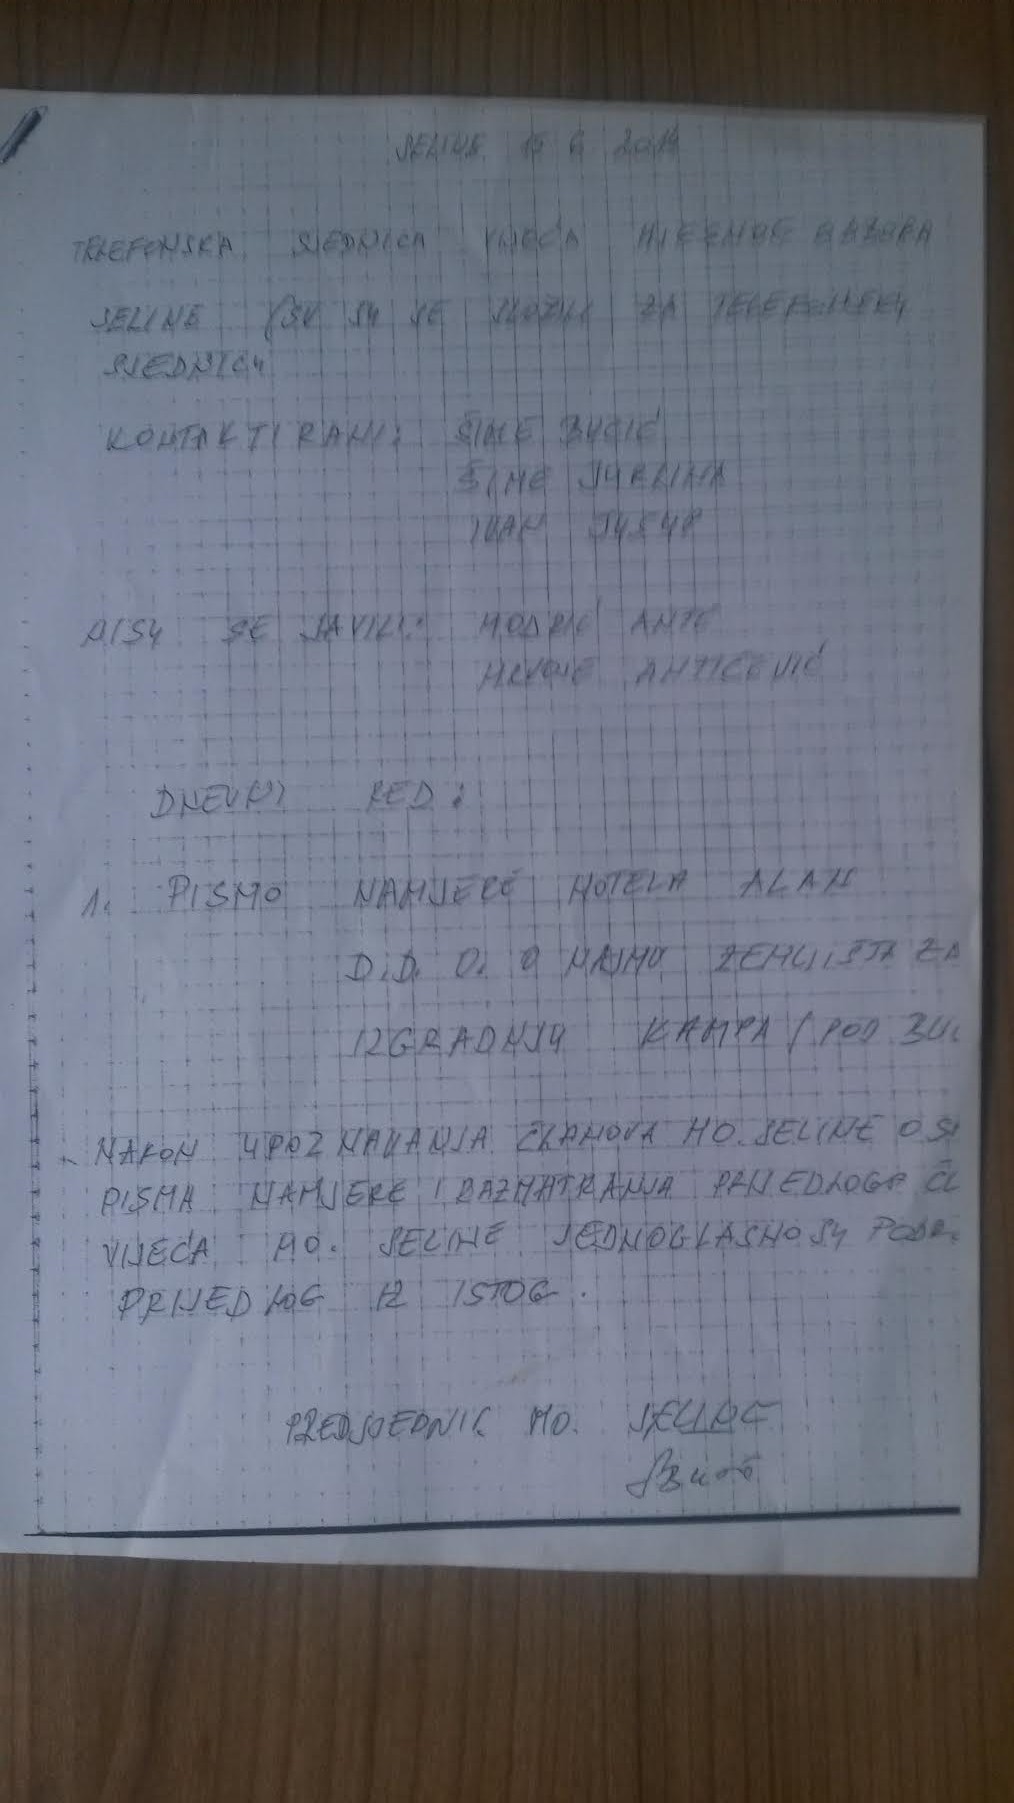 SELINE 15 6 2014
TELEFONSKA SJEDNICA VIJEĆA MJESNOG ODBORA
SELINE (SVI SU SE SLOŽILI ZA TELEFONSKU
SJEDNICU
KONTAKTIRANI: ŠIME BUCIĆ
ŠIME JURLINA
IVAN JUSUP
NISU SE JAVILI: MODRIĆ ANTE
HRVOJE ANTIČEVIĆ
DNEVNI RED:
1. PISMO NAMJERE HOTELA ALAN
D.D. O. O NAJMU ZEMLJIŠTA ZA
IZGRADNJU KAMPA (POD BU
- NAKON UPOZNAVANJA ČLANOVA MO. SELINE O S
PISMA NAMJERE I RAZMATRANJA PRIJEDLOGA ČL
VIJEĆA MO. SELINE JEDNOGLASNO SU PODR
PRIJEDLOG IZ ISTOG.
PREDSJEDNIK MO. SELINE